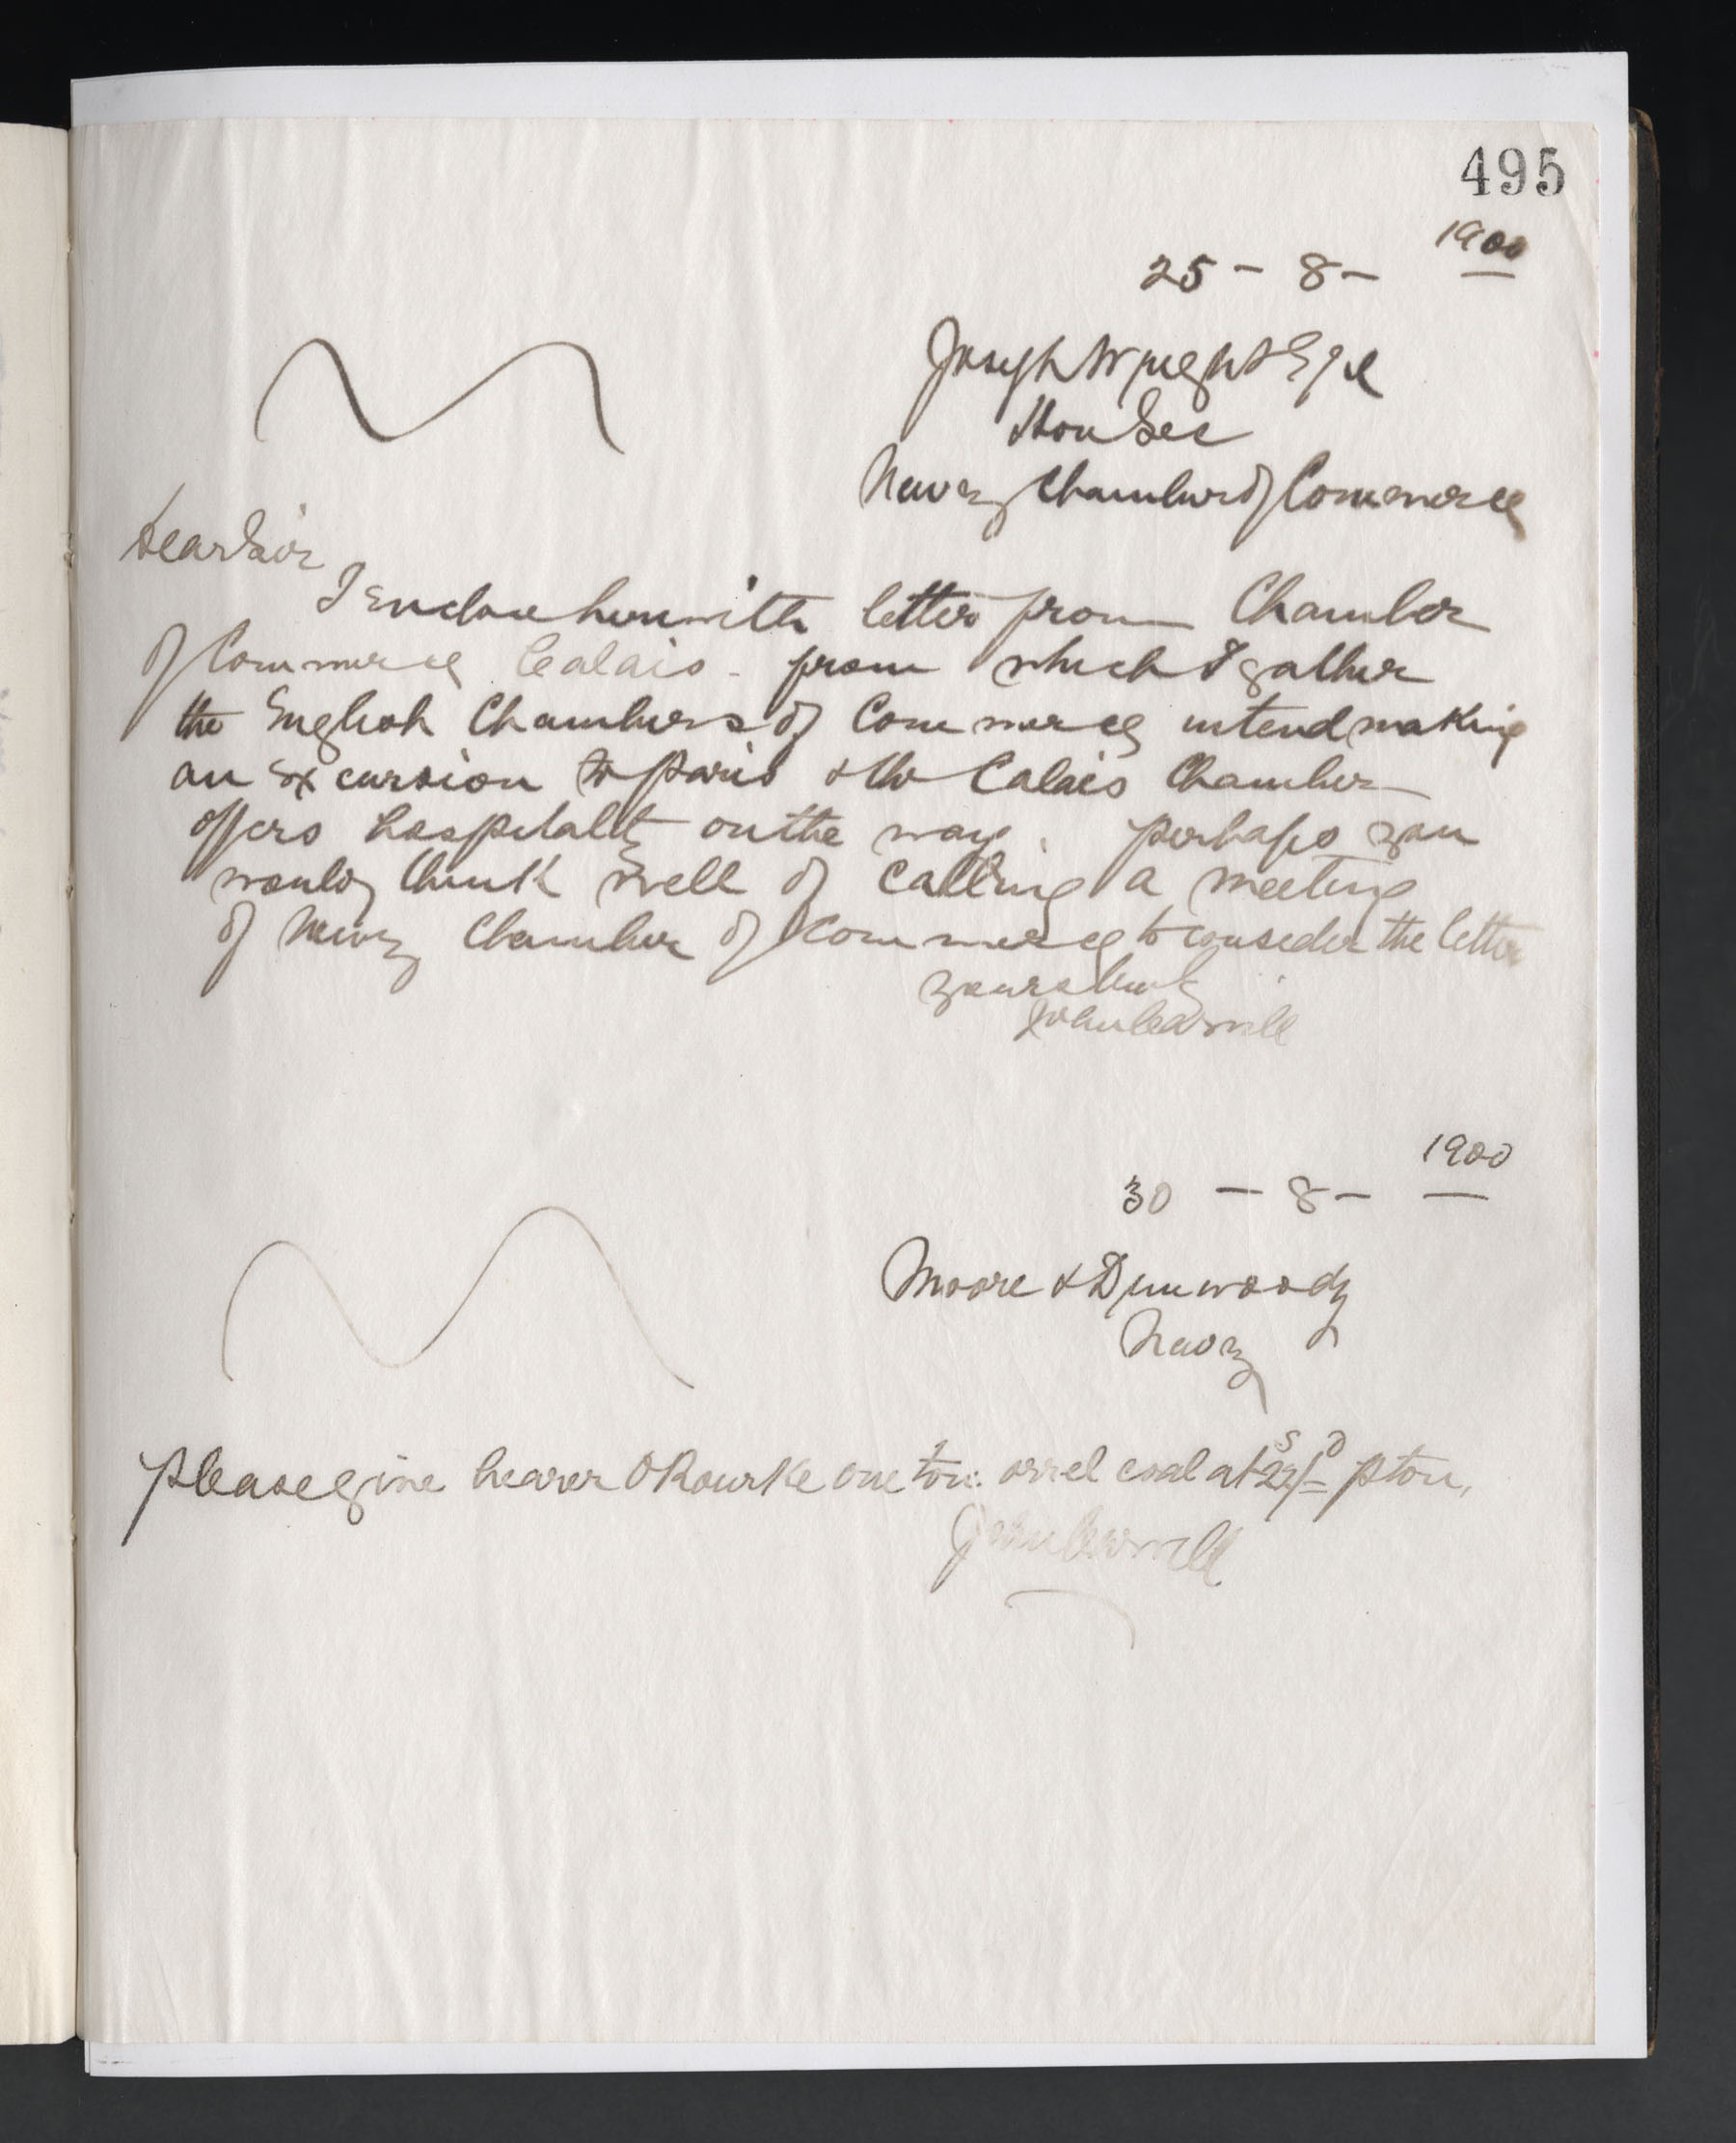 495
1900
25 - 8 -
Joseph Wright Esqe
Hon Sec
Newry Chamber of Commerce
Dear Sir
I enclose herewith letter from Chamber
of Commerce Calais - from which I gather
the English Chambers of Commerce intend making
an excursion to Paris & the Calais Chamber
offers hospitality on the way. perhaps you
would think well of calling a meeting
of Newry Chamber of Commerce to consider the letter
yours truly
1900
30 - 8 -
Moore & Dunwoody
Newry
Please give bearer O Rourke one ton orrel coal at 22/= p ton,